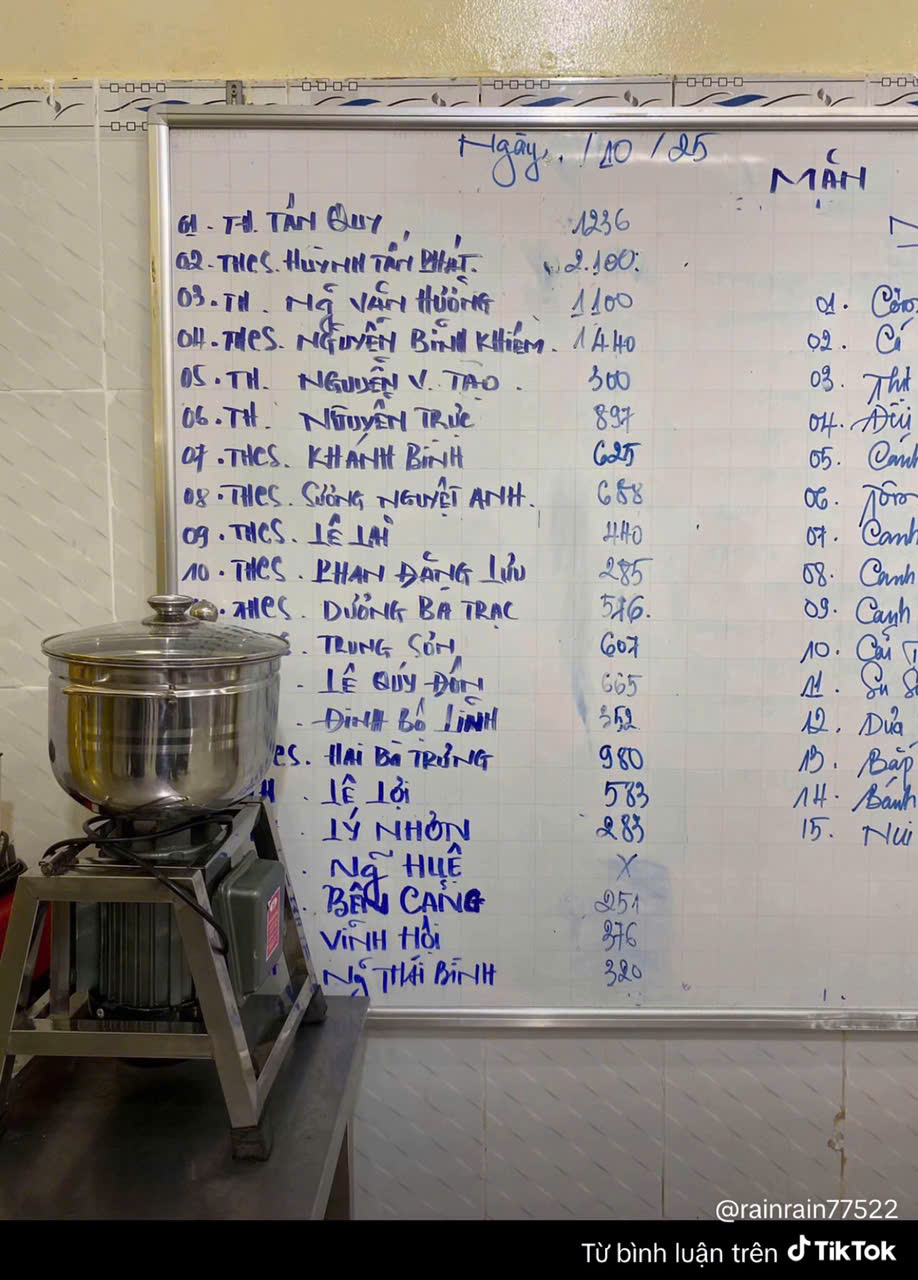 Ngày. /10 /25
MẶN
01. TH. TÂN QUY 1236
02. THCS. HUỲNH TẤN PHÁT. 2.100.
03. TH. NG VĂN HƯỞNG 1100
04. THCS. NGUYỄN BỈNH KHIÊM. 1440
05. TH. NGUYỄN V. TẠO. 300
06. TH. NGUYỄN TRỰC 897
07. THCS. KHÁNH BÌNH 625
08. THCS. SƯƠNG NGUYỆT ANH. 688
09. THCS. LÊ LAI 440
10. THCS. PHAN ĐĂNG LƯU 285
THCS. DƯƠNG BÁ TRẠC 576.
. TRUNG SƠN 607
. LÊ QUÝ ĐÔN 665
. ĐINH BỘ LĨNH 352
CS. HAI BÀ TRƯNG 980
H. LÊ LỢI 583
. LÝ NHƠN 283
. NG HUỆ X
. BẾN CẢNG 251
VĨNH HỘI 376
NG THÁI BÌNH 320
01.
02. Cá
03. Thịt
04. Đùi
05. Cánh
06.
07. Canh
08. Canh
09. Canh
10. Cải T
11. Su S
12. Dưa
13. Bắp
14. Bánh
15. Nui
@rainrain77522
Từ bình luận trên TikTok